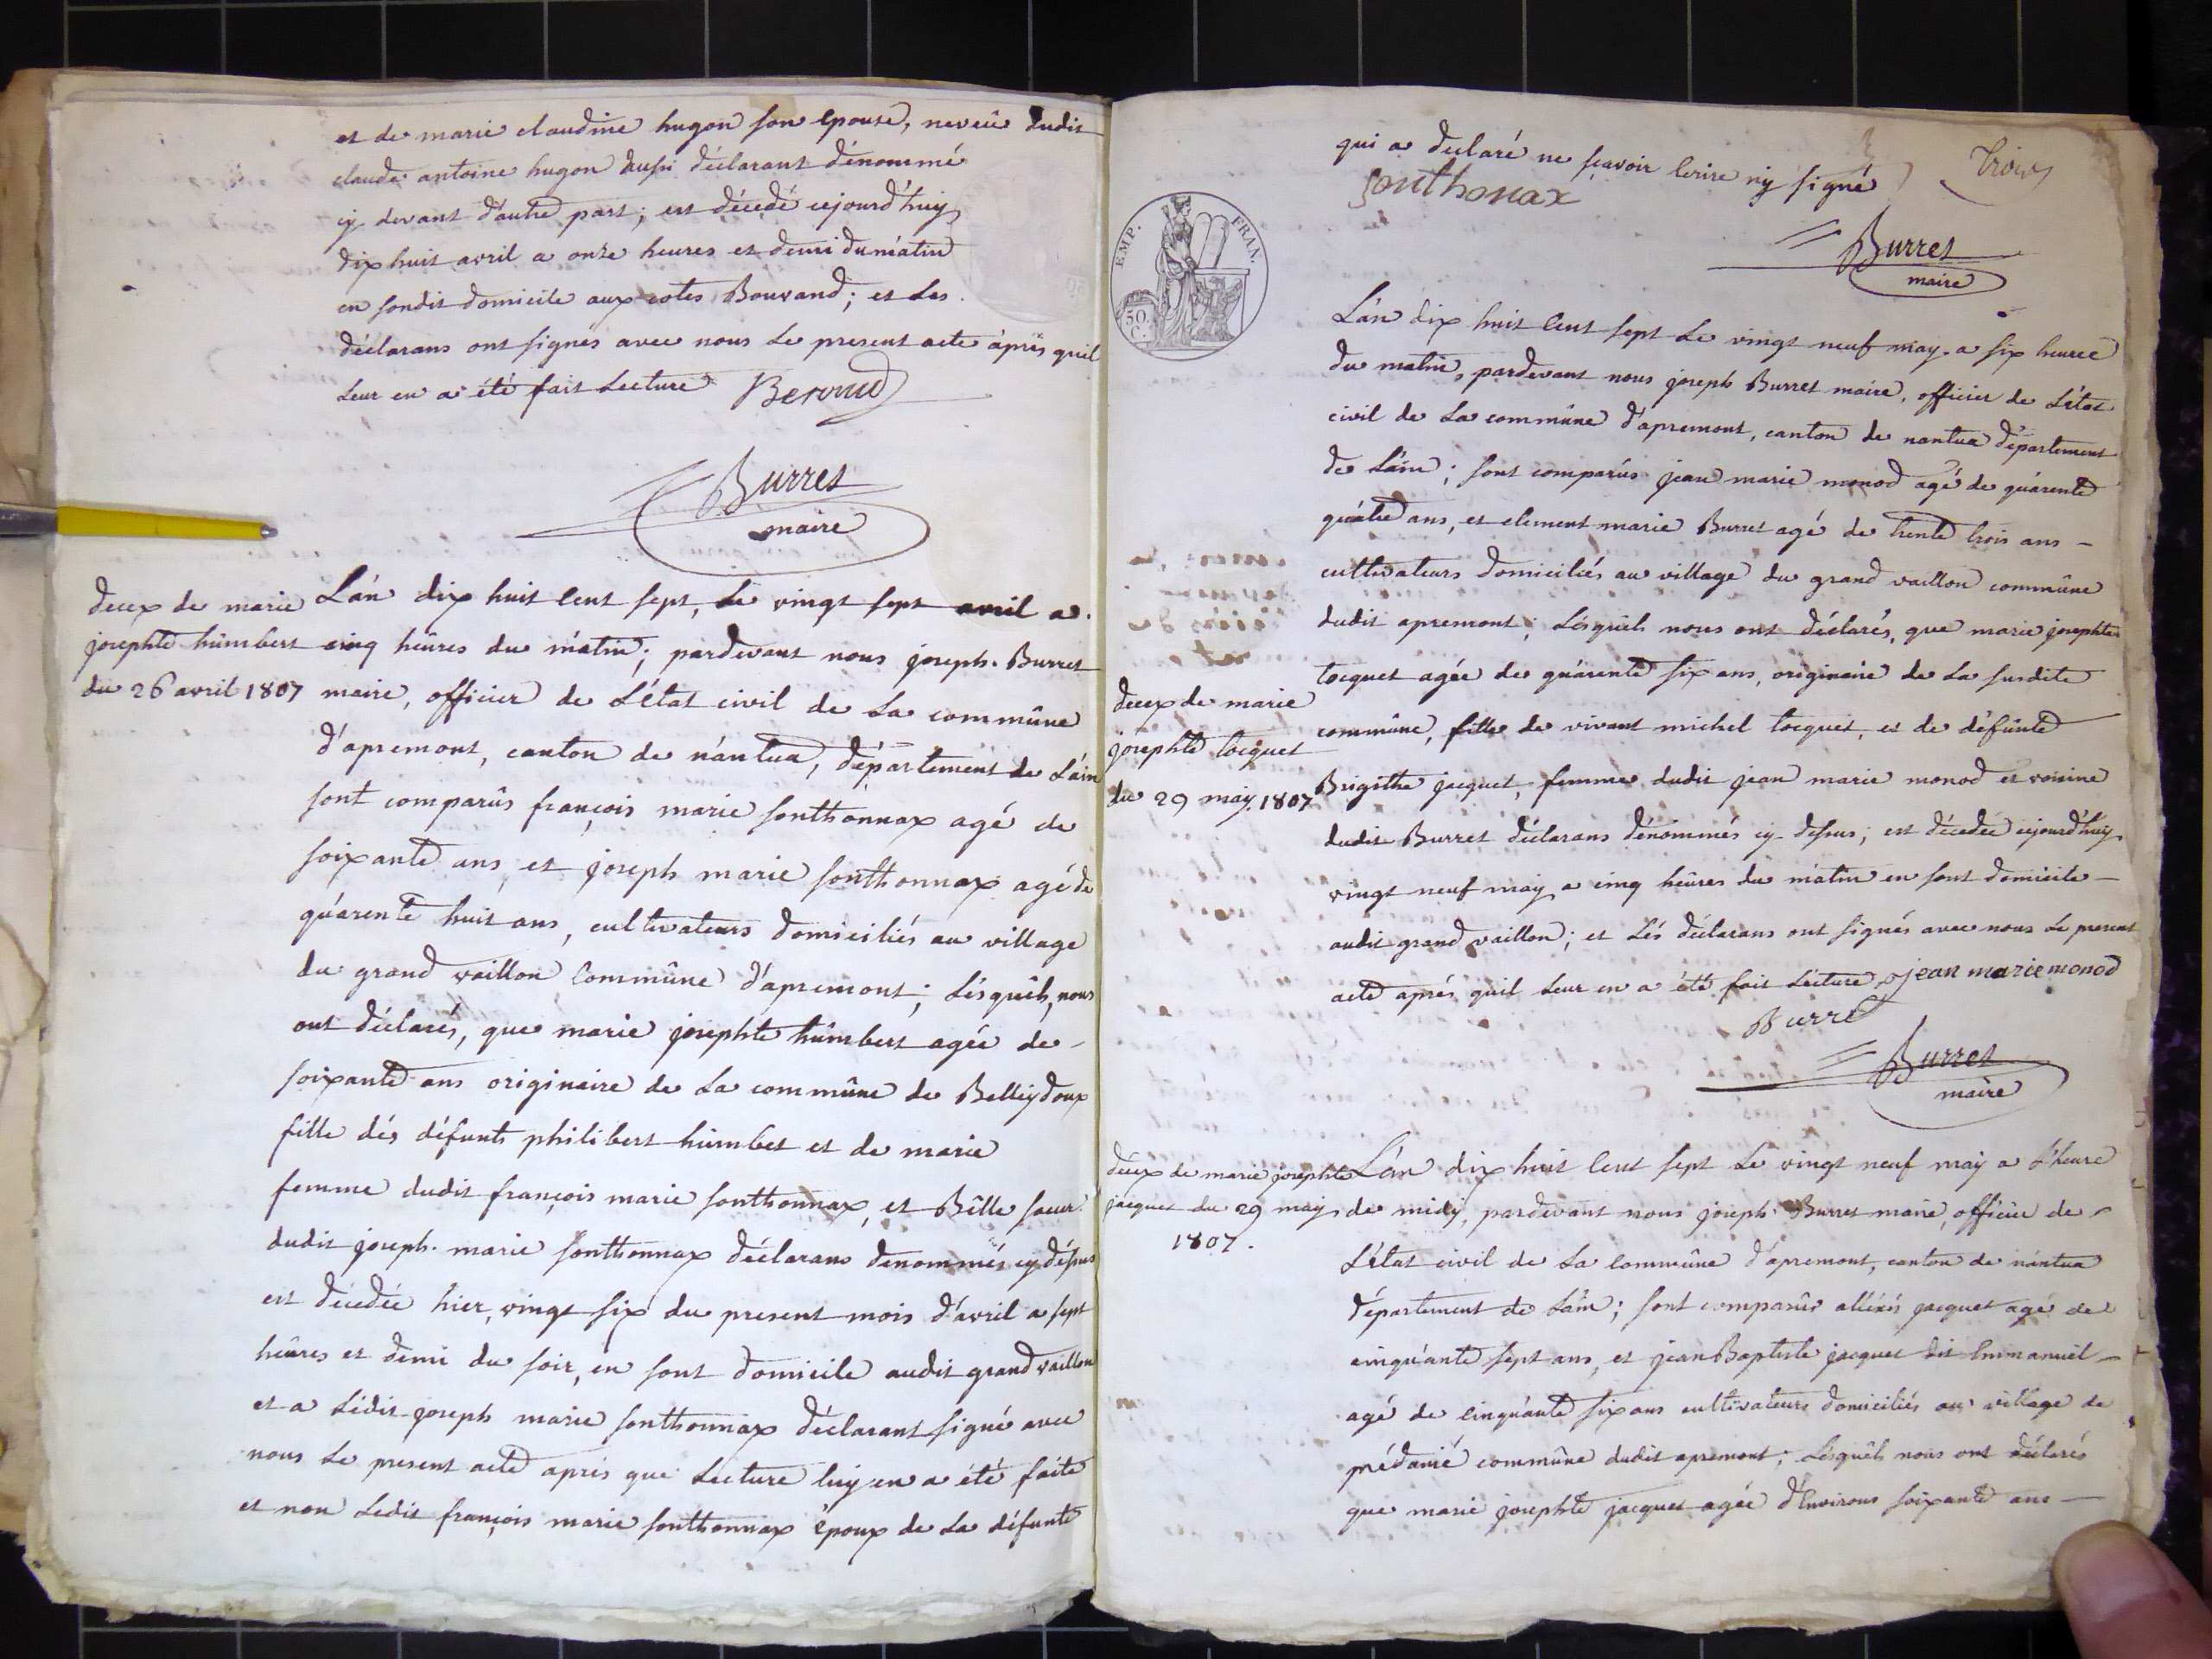 et de marie claudine hugon son epouse, neveû dudit
claude antoine hugon aussi déclarant dénommé
cy devant d'autre part; est décedé cejourd'huy
dix huit avril a onze heures et demi du mátin
en sondit domicile aux cotes Bouvand; et Les
déclarans ont signés avec nous Le present acte áprès quil
Leur en a été fait Lecture Beroud
Burret
maire
deces de marie
josephte húmbert
du 26 avril 1807
L'án dix huit cent sept, Le vingt sept avril a
cinq heûres du mátin; pardevant nous joseph Burret
maire, officier de L'état civil de La commûne
d'apremont, canton de nántua, département de L'áin
sont comparûs françois marie sonthonnax agé de
soixante ans, et joseph marie sonthonnax agé de
quárente huit ans, cultivateurs domiciliés au village
du grand vaillon Commûne d'apremont; Lésquéls, nous
ont déclarés, que marie josephte húmbert agée de
soixante ans originaire de La commûne de Belleydoux
fille dés défunts philibert húmbet et de marie
femme dudit françois marie sonthonnax, et Bêlle soeur
dudit joseph marie sonthonnax déclarans dénommés cy déssus
est décedée hier, vingt six du present mois d'ávril a sept
heûres et demi du soir, en sont domicile audit grand vaillon
et a Lédit joseph marie sonthonnax déclarant signé avec
nous Le present acte aprés que Lecture luy en a été faite
et non Ledit françois marie sonthonnax époux de La défunte
qui a declaré ne sçavoir Ecrire ny signé
Trois
Sonthonax
Burret
maire
EMP. FRAN.
50 C.
L'án dix huit Cent sept Le vingt neuf may a six heures
du matin, pardevant nous joseph Burret maire, officier de L'état
civil de La commûne d'apremont, canton de nantua département
de L'áin; sont comparûs jean marie monod agé de quárente
quátre ans, et clement marie Burret agé de trente trois ans
cultivateurs domiciliés au village du grand vaillon commûne
dudit apremont; Lésquéls nous ont déclarés, que marie josephte
tocquet agée de quárente six ans, originaire de La susdite
commûne, fille de vivant michel tocquet, et de défûnte
Brigithe jacquet, femme dudit jean marie monod et voisine
dudit Burret déclarans dénommés cy dessus; est décedée cejourd'huy
vingt neuf may a cinq heûres du mátin en sont domicile
audit grand vaillon; et Lés déclarans ont signés avec nous Le present
acte aprés quil Leur en a été fait Lecture jean marie monod
Burret
Burret
maire
deces de marie
josephte tocquet
du 29 may 1807
deces de marie josephte
jacquet du 29 may
1807.
L'án dix huit Cent sept Le vingt neuf may a L'heure
de midy, pardevant nous joseph Burret maire, officier de
L'état civil de La Commûne d'apremont, canton de nántua
département de L'áin; sont comparûs aléxis jacquet agé de
cinquánte sept ans, et jean Baptiste jacquet dit Emmanuel
agé de cinquánte six ans cultivateurs domiciliés au village de
prédanié commûne dudit apremont; Lésquéls nous ont déclarés
que marie josephte jacquet agée d'Environs soixante ans